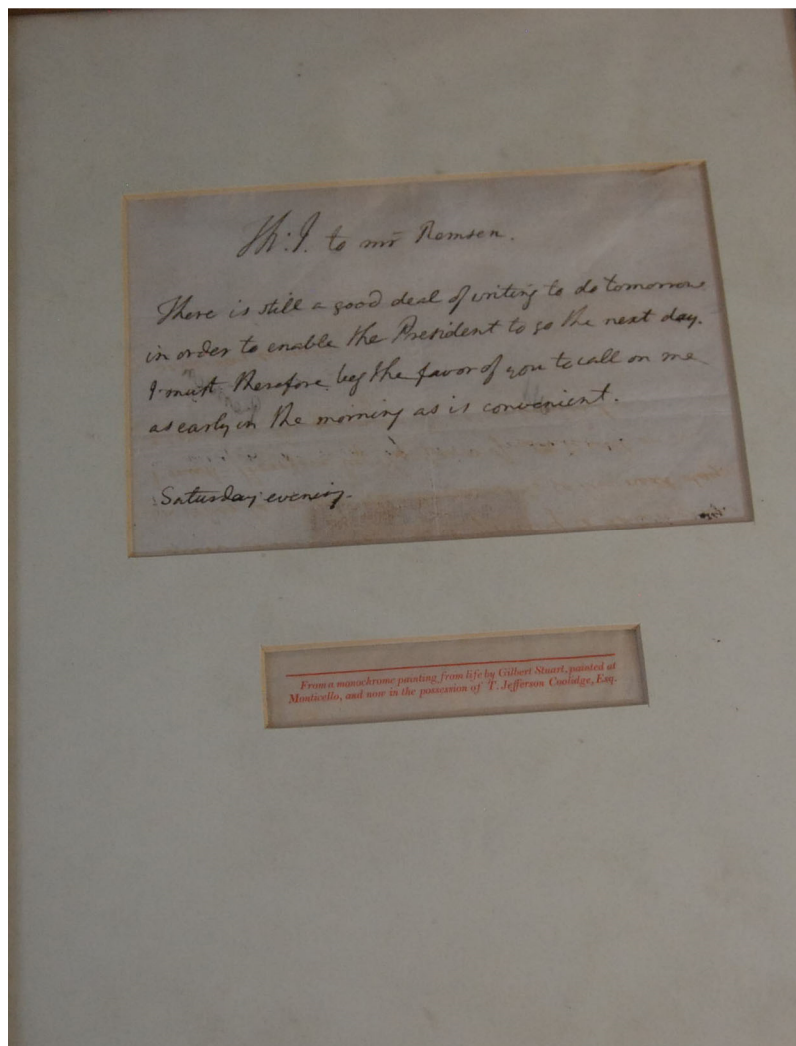 Th: J. to mr Remsen.
There is still a good deal of writing to do tomorrow
in order to enable the President to go the next day.
I must therefore beg the favor of you to call on me
as early in the morning as is convenient.
Saturday evening.
From a monochrome painting from life by Gilbert Stuart, painted at
Monticello, and now in the possession of T. Jefferson Coolidge, Esq.